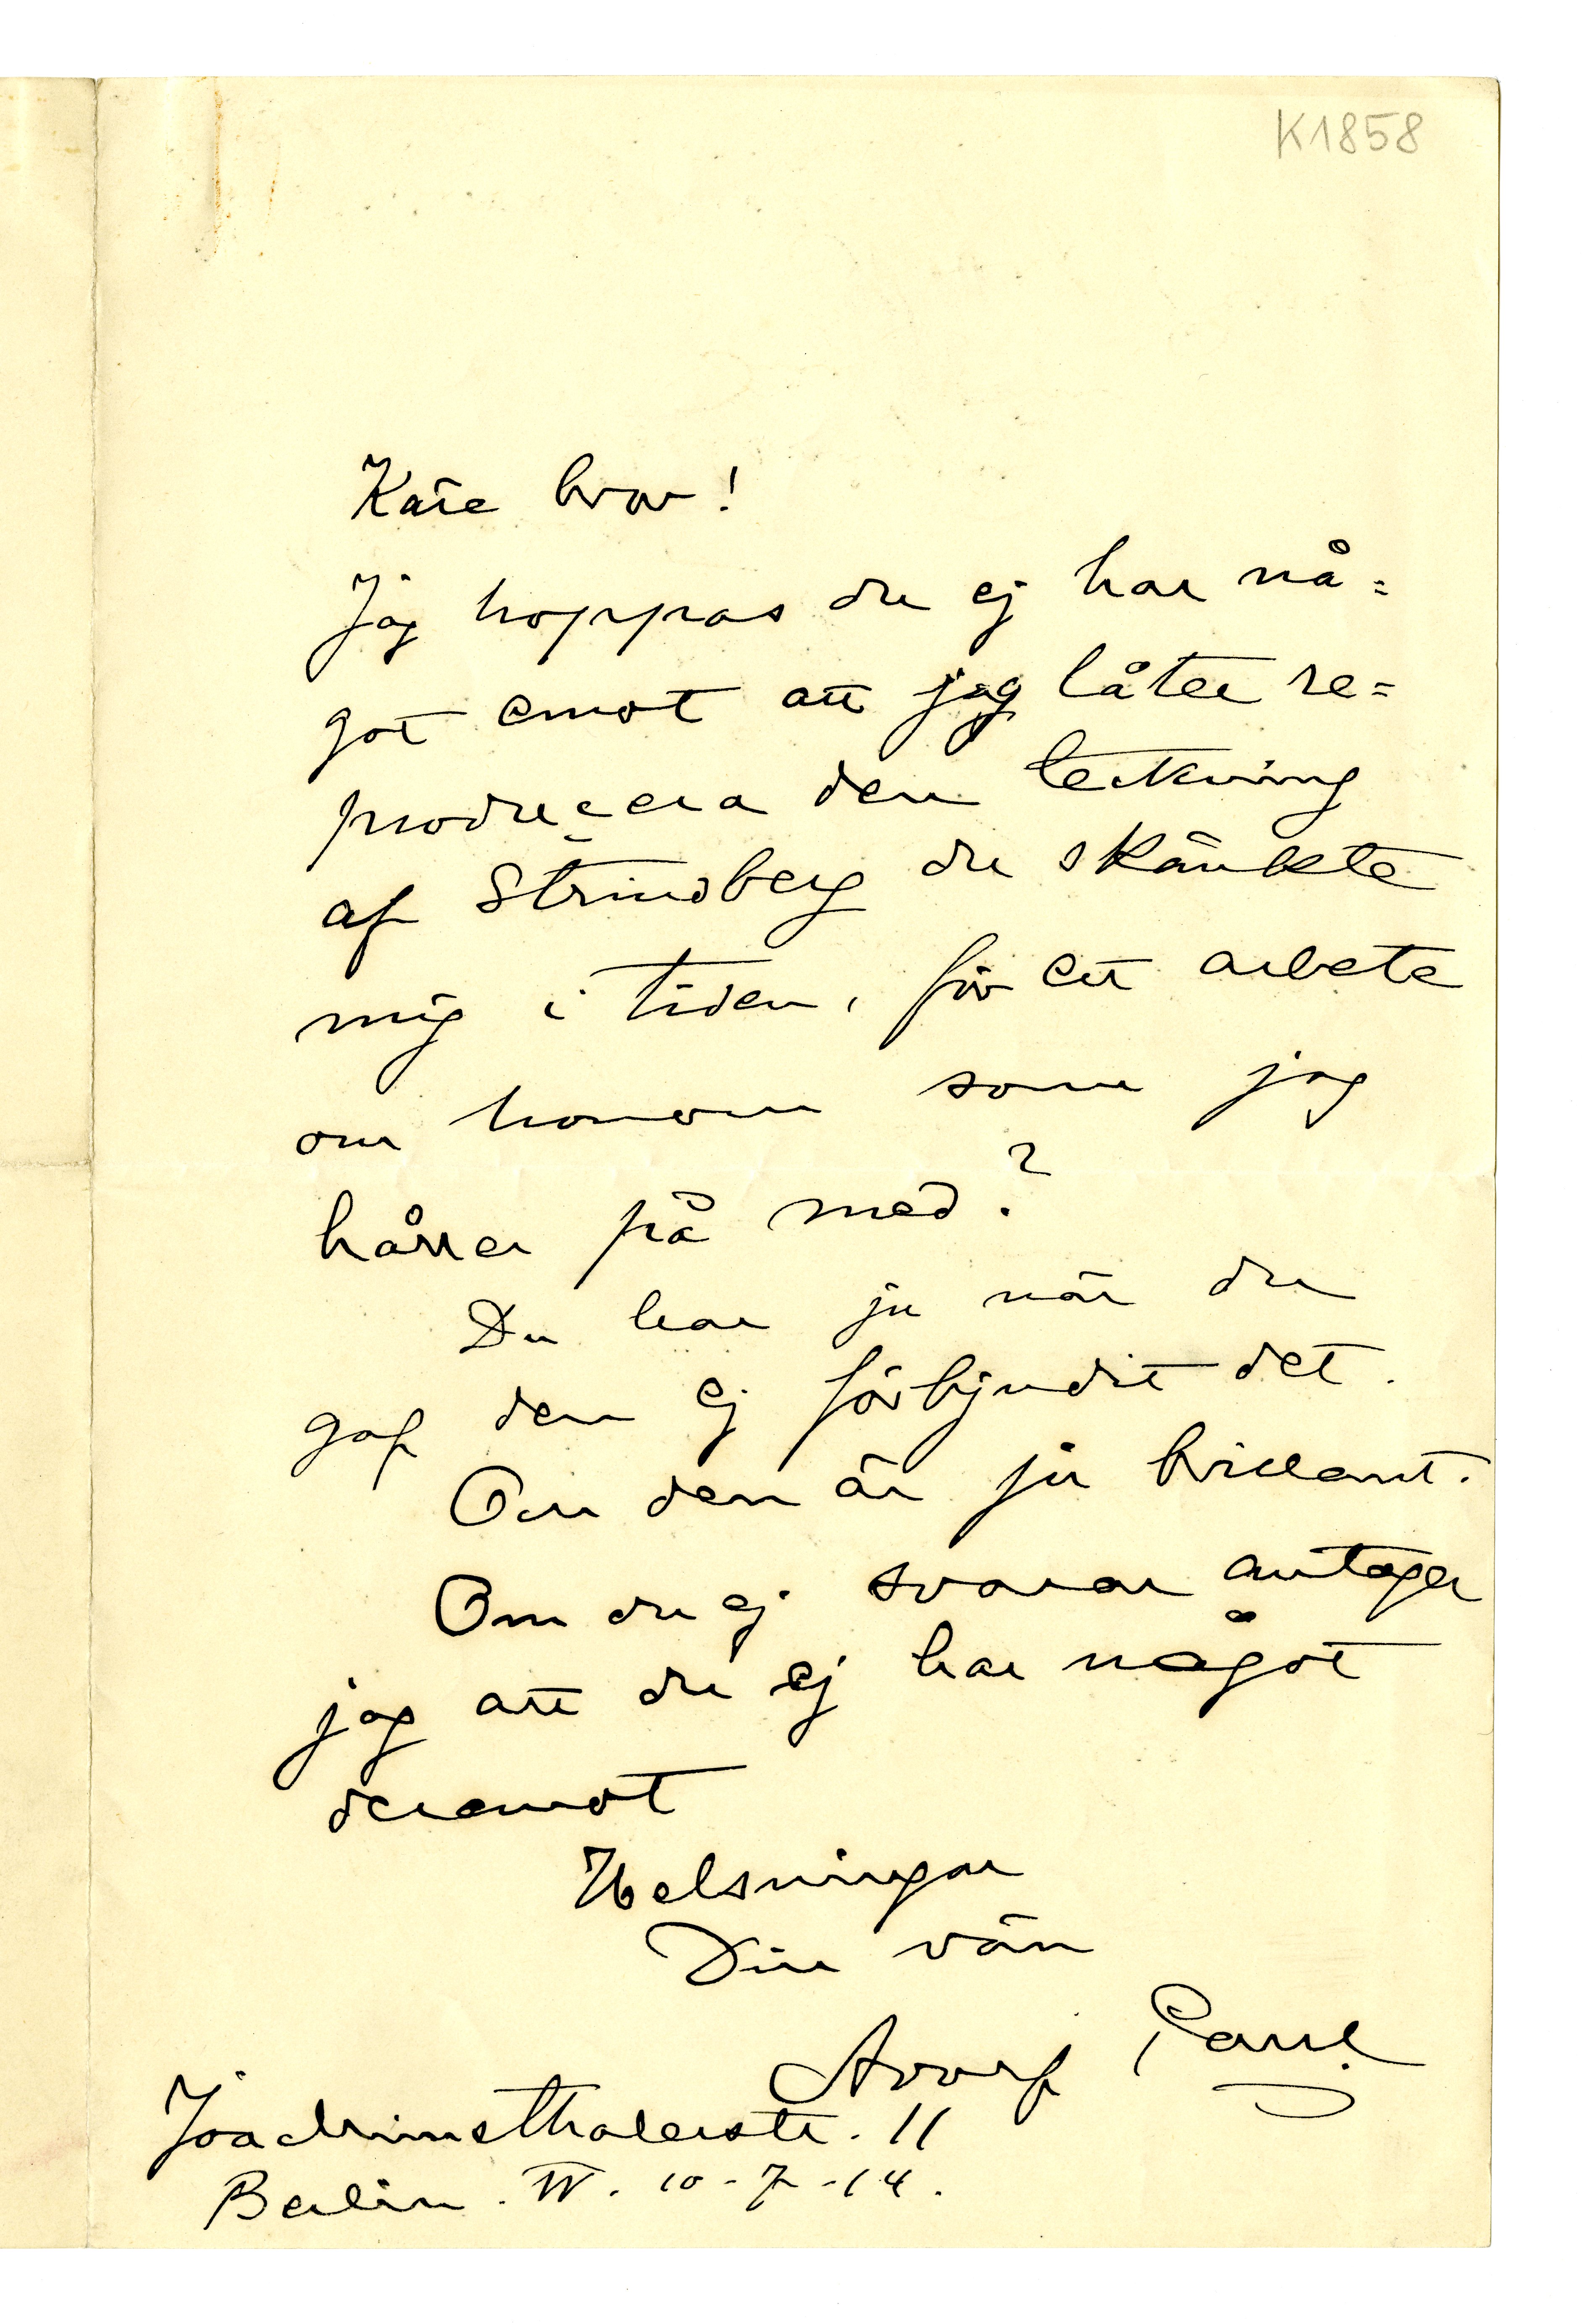 K1858
Käre bror!
Jag hoppas du ej har nå=
got emot att jag låter re=
producera den teckning
af Strindberg du skänkte
mig i tiden, för ett arbete
om honom som jag
håller på med?
Du har ju när du
gaf den ej förbjudit det.
Och den är ju brillant.
Om du ej svarar antager
jag att du ej har något
deremot
Helsningar
Din vän
Adolf Paul
Joachimsthalerstr. 11
Berlin. W. 10-7-14.